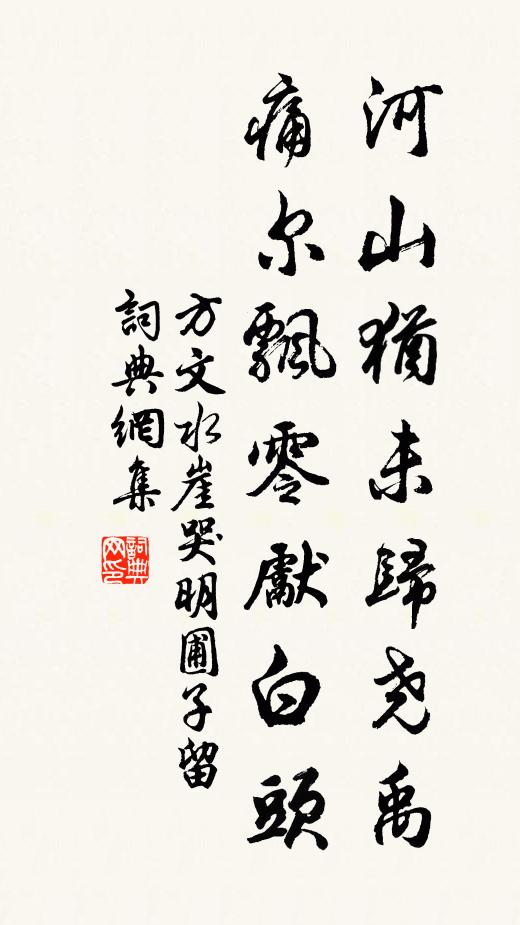 河山猶未歸尧禹
痛尔飄零獻白頭
方文水崖哭明圃子留
詞典網集
詞典网印